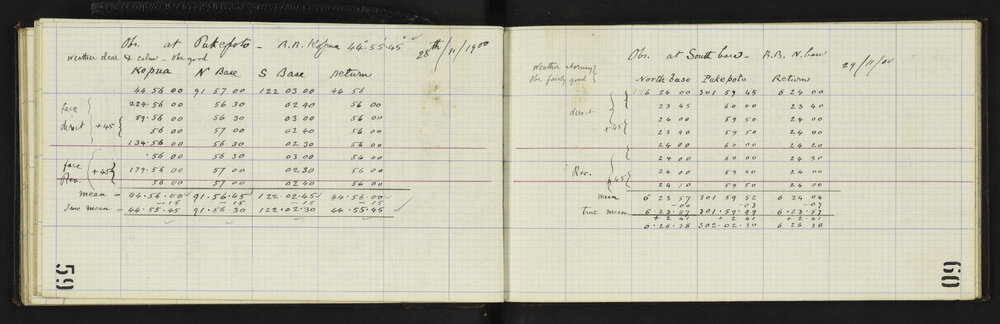 Obs. at Pukepoto - R.R. Kopua 44°.55'.45"
28th/11/1900
Weather clear & calm - Obs. good
Kopua N Base S Base return
44 56 00 91 57 00 122 03 00 44 56
224.56 00 56 30 02 40 56 00
face 89.56 00 56 30 03 00 56 00
direct +45 56 00 57 00 02 40 56 00
134.56 00 56 30 02 30 56 00
.56 00 56 30 03 00 56 00
face 179.56 00 57 00 02 30 56 00
Rev. +45 56 00 57 00 02 40 56 00
mean = 44.56.00 91.56.45 122.02.45 44.56.00
-15 -15 -15 -15
True mean = 44.55.45 91.56.30 122.02.30 44.55.45
59
Obs. at South base - R.R. N. base
29/11/00
Weather stormy
Obs. fairly good
North base Pukepoto Return
6 24 00 301 59 45 6 24 00
23 45 60 00 23 40
direct 24 00 59 50 24 00
+45 23 40 59 50 24 00
24 00 60 00 24 20
24 00 60 00 24 30
Rev. 24 00 59 40 24 00
+45 24 10 59 50 24 00
mean 6 23 57 301 59 52 6 24 04
-00 -03 -07
true mean 6.23.57 301.59.49 6.23.57
+2 41 +2 41 +2.41
6.26.38 302.02.30 6 26 38
60